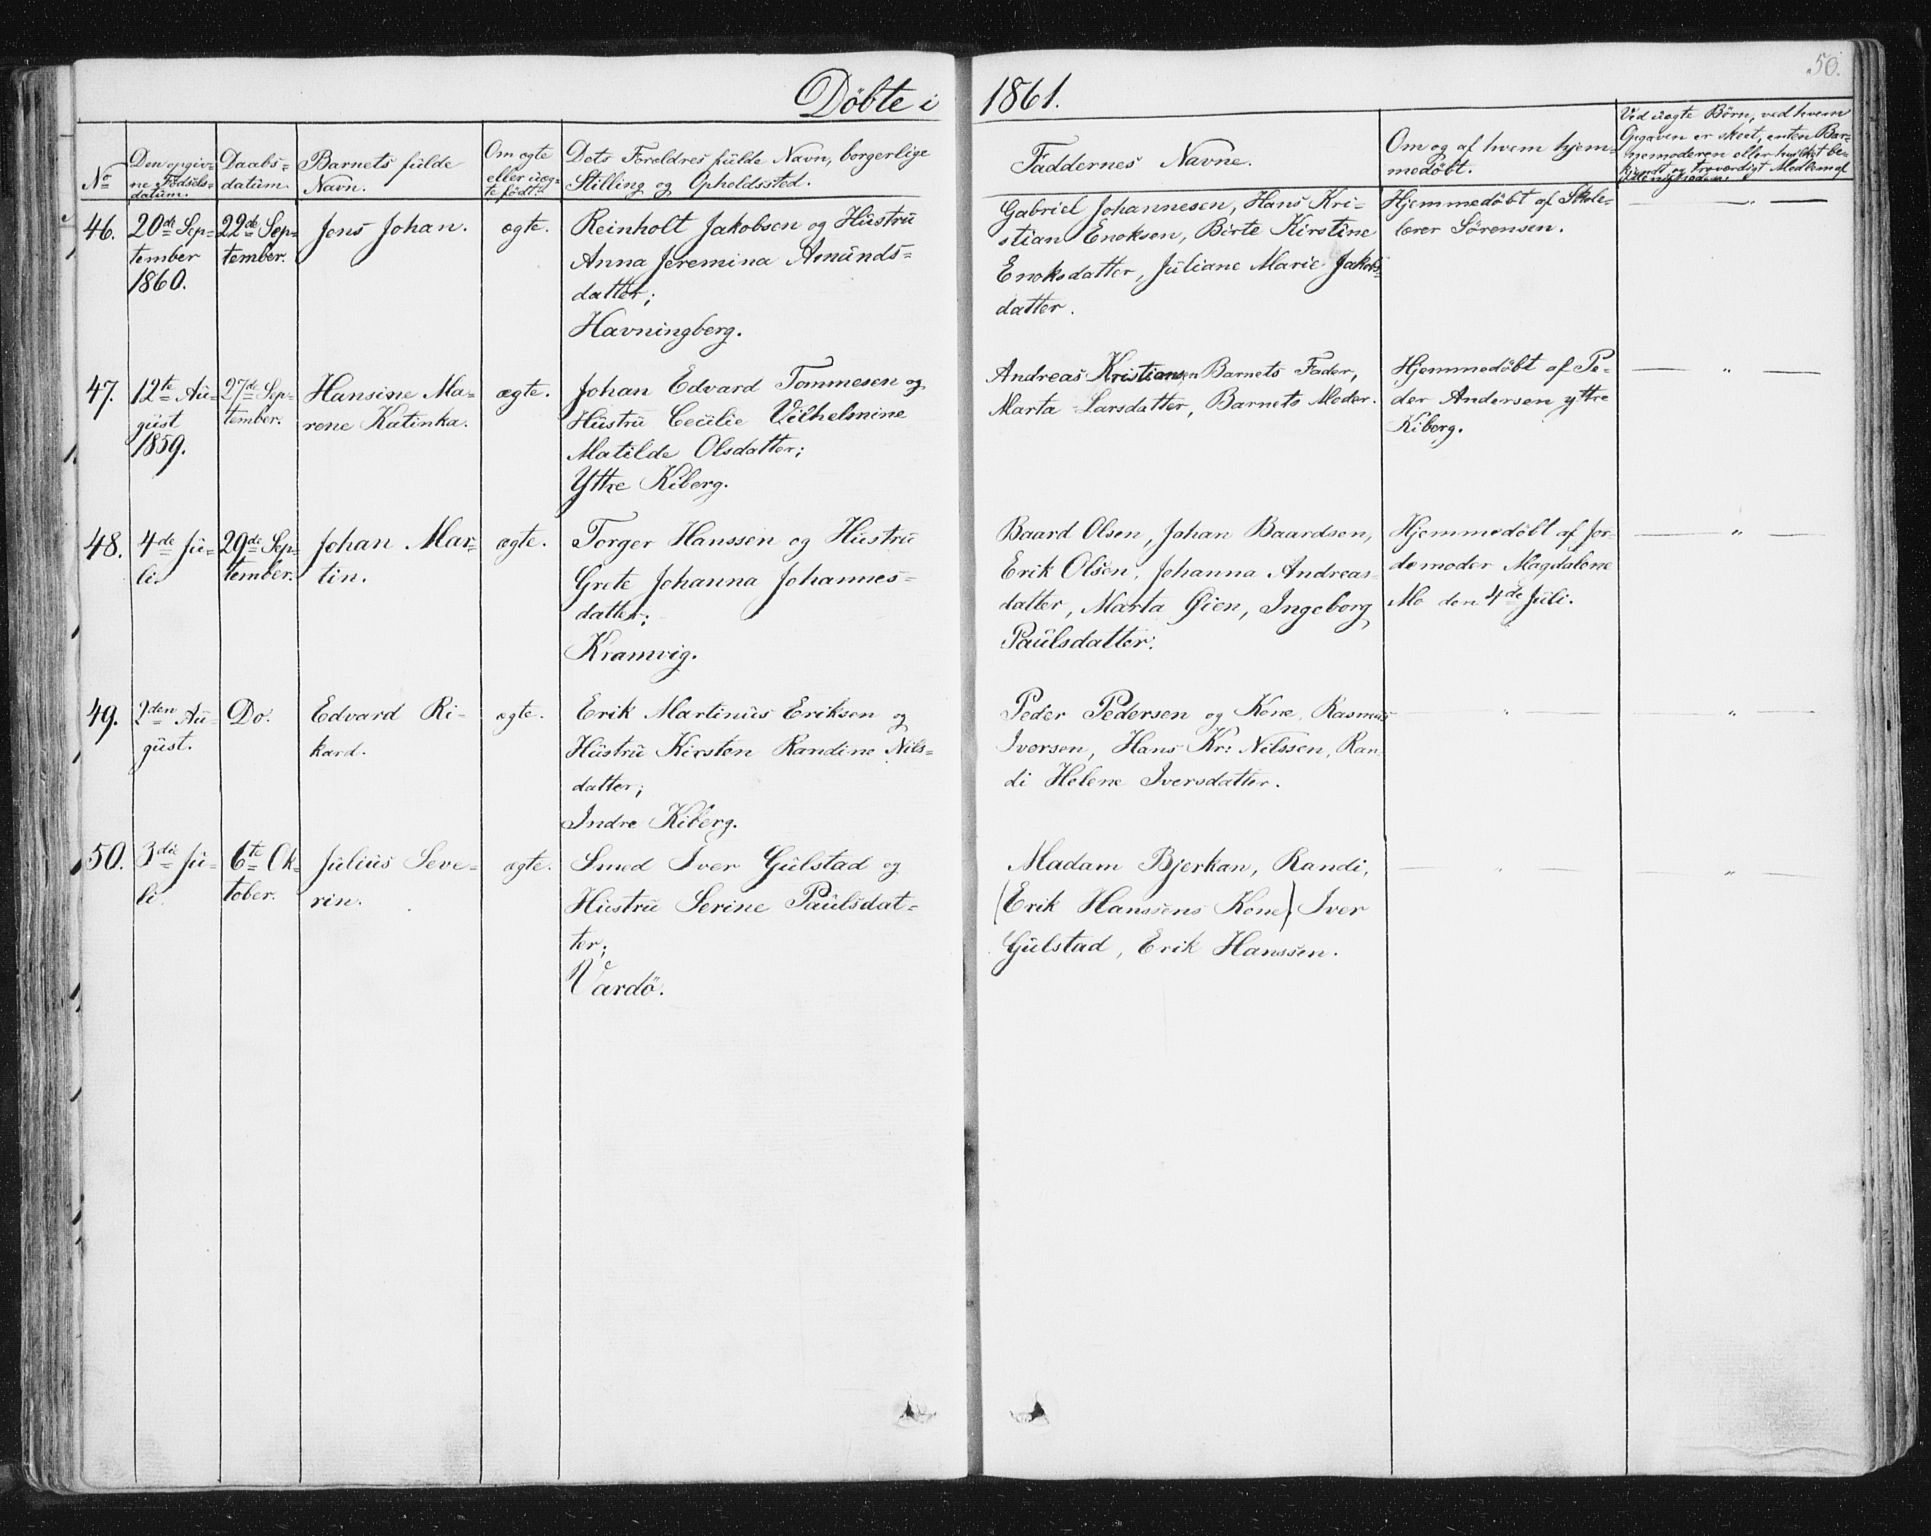 Döbte i 1861.
50.
No
Den opgiv-
ne Födsels-
datum.
Daabs-
datum.
Barnets fulde
Navn.
Om ægte
eller uæg-
te födt.
Dets Foreldres fulde Navn, borgerlige
Stilling og Opholdssted.
Faddernes Navne.
Om og af hvem hjem-
medöbt.
Ved uægte Börn, ved hvem
Opgaven er skeet, enten Bar-
nemoderen eller hvilket be-
kjendt og troværdigt Medlem af
Menigheden.
46.
20de Sep-
tember
1860.
22de Sep-
tember.
Jens Johan.
ægte.
Reinholt Jakobsen og Hustru
Anna Jeremina Amunds-
datter;
Havningberg.
Gabriel Johannesen, Hans Kri-
stian Enoksen, Birte Kirstine
Enoksdatter, Juliane Marie Jakobs-
datter.
Hjemmedöbt af Skole-
lærer Sörensen.
47.
12te Au-
gust
1859.
27de Sep-
tember.
Hansine Ma-
rene Katinka.
ægte.
Johan Edvard Tommesen og
Hustru Cecilie Vilhelmine
Matilde Olsdatter;
Yttre Kiberg.
Andreas Kristiansen Barnets Fader,
Marta Larsdatter, Barnets Moder.
Hjemmedöbt af Pe-
der Andersen yttre
Kiberg.
48.
4de Ju-
li.
29de Sep-
tember.
Johan Mar-
tin.
ægte.
Torger Hanssen og Hustru
Grete Johanna Johannes-
datter;
Kramvig.
Baard Olsen, Johan Baardsen,
Erik Olsen, Johanna Andreas-
datter, Marta Öien, Ingeborg
Paulsdatter.
Hjemmedöbt af Jor-
demoder Magdalene
Mo den 4de Juli.
49.
2den Au-
gust.
Do.
Edvard Ri-
kard.
ægte.
Erik Martinus Eriksen og
Hustru Kirsten Randine Nils-
datter;
Indre Kiberg.
Peder Pedersen og Kone, Rasmus
Iversen, Hans Kr: Nilssen, Ran-
di Helene Iversdatter.
50.
3die Ju-
li.
6te Ok-
tober.
Julius Seve-
rin.
ægte.
Smed Iver Gulstad og
Hustru Serine Paulsdat-
ter;
Vardö.
Madam Bjerkan, Randi,
(Erik Hanssens Kone) Iver
Gulstad, Erik Hanssen.